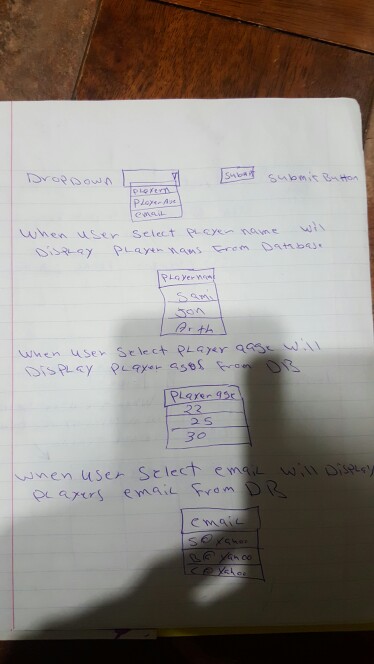 DropDown
Submit
Submit Button
PlayerN
PlayerAge
email
When User Select Player name will
Display Player nams From Database
Playername
Sami
Jon
When User Select Player aage will
Display Player ages From DB
Player age
22
25
30
When User Select email will Display
Players email From DB
email
S@Yahoo
B@Yahoo
C@Yahoo